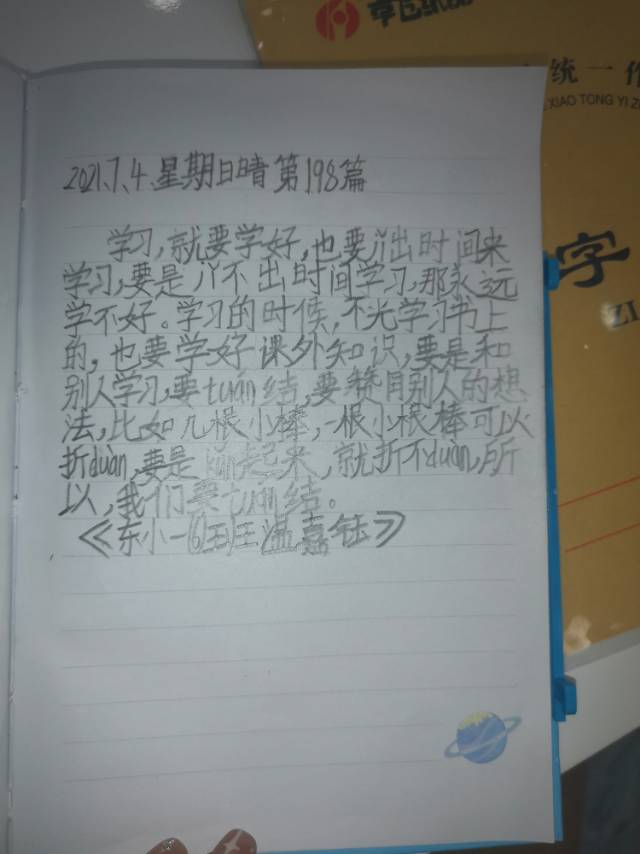 2021、7、4、星期日晴 第198篇
学习,就要学好,也要挤出时间来
学习,要是挤不出时间学习,那永远
学不好。学习的时候,不光学习书上
的,也要学好课外知识,要是和
别人学习,要tuán结,要赞同别人的想
法,比如几根小棒,一根小根棒可以
折duàn,要是kǔn起来,就折不duàn,所
以,我们要tuán结。
《东小一⑥班温嘉钰》
统一作
XIAO TONG YI Z
字
ZI